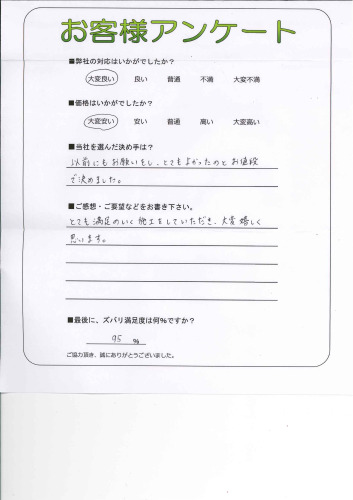 お客様アンケート
■弊社の対応はいかがでしたか？
大変良い 良い 普通 不満 大変不満
■価格はいかがでしたか？
大変安い 安い 普通 高い 大変高い
■当社を選んだ決め手は？
以前にもお願いをし、とてもよかったのとお値段
で決めました。
■ご感想・ご要望などをお書き下さい。
とても満足のいく施工をしていただき、大変嬉しく
思います。
■最後に、ズバリ満足度は何％ですか？
95 ％
ご協力頂き、誠にありがとうございました。